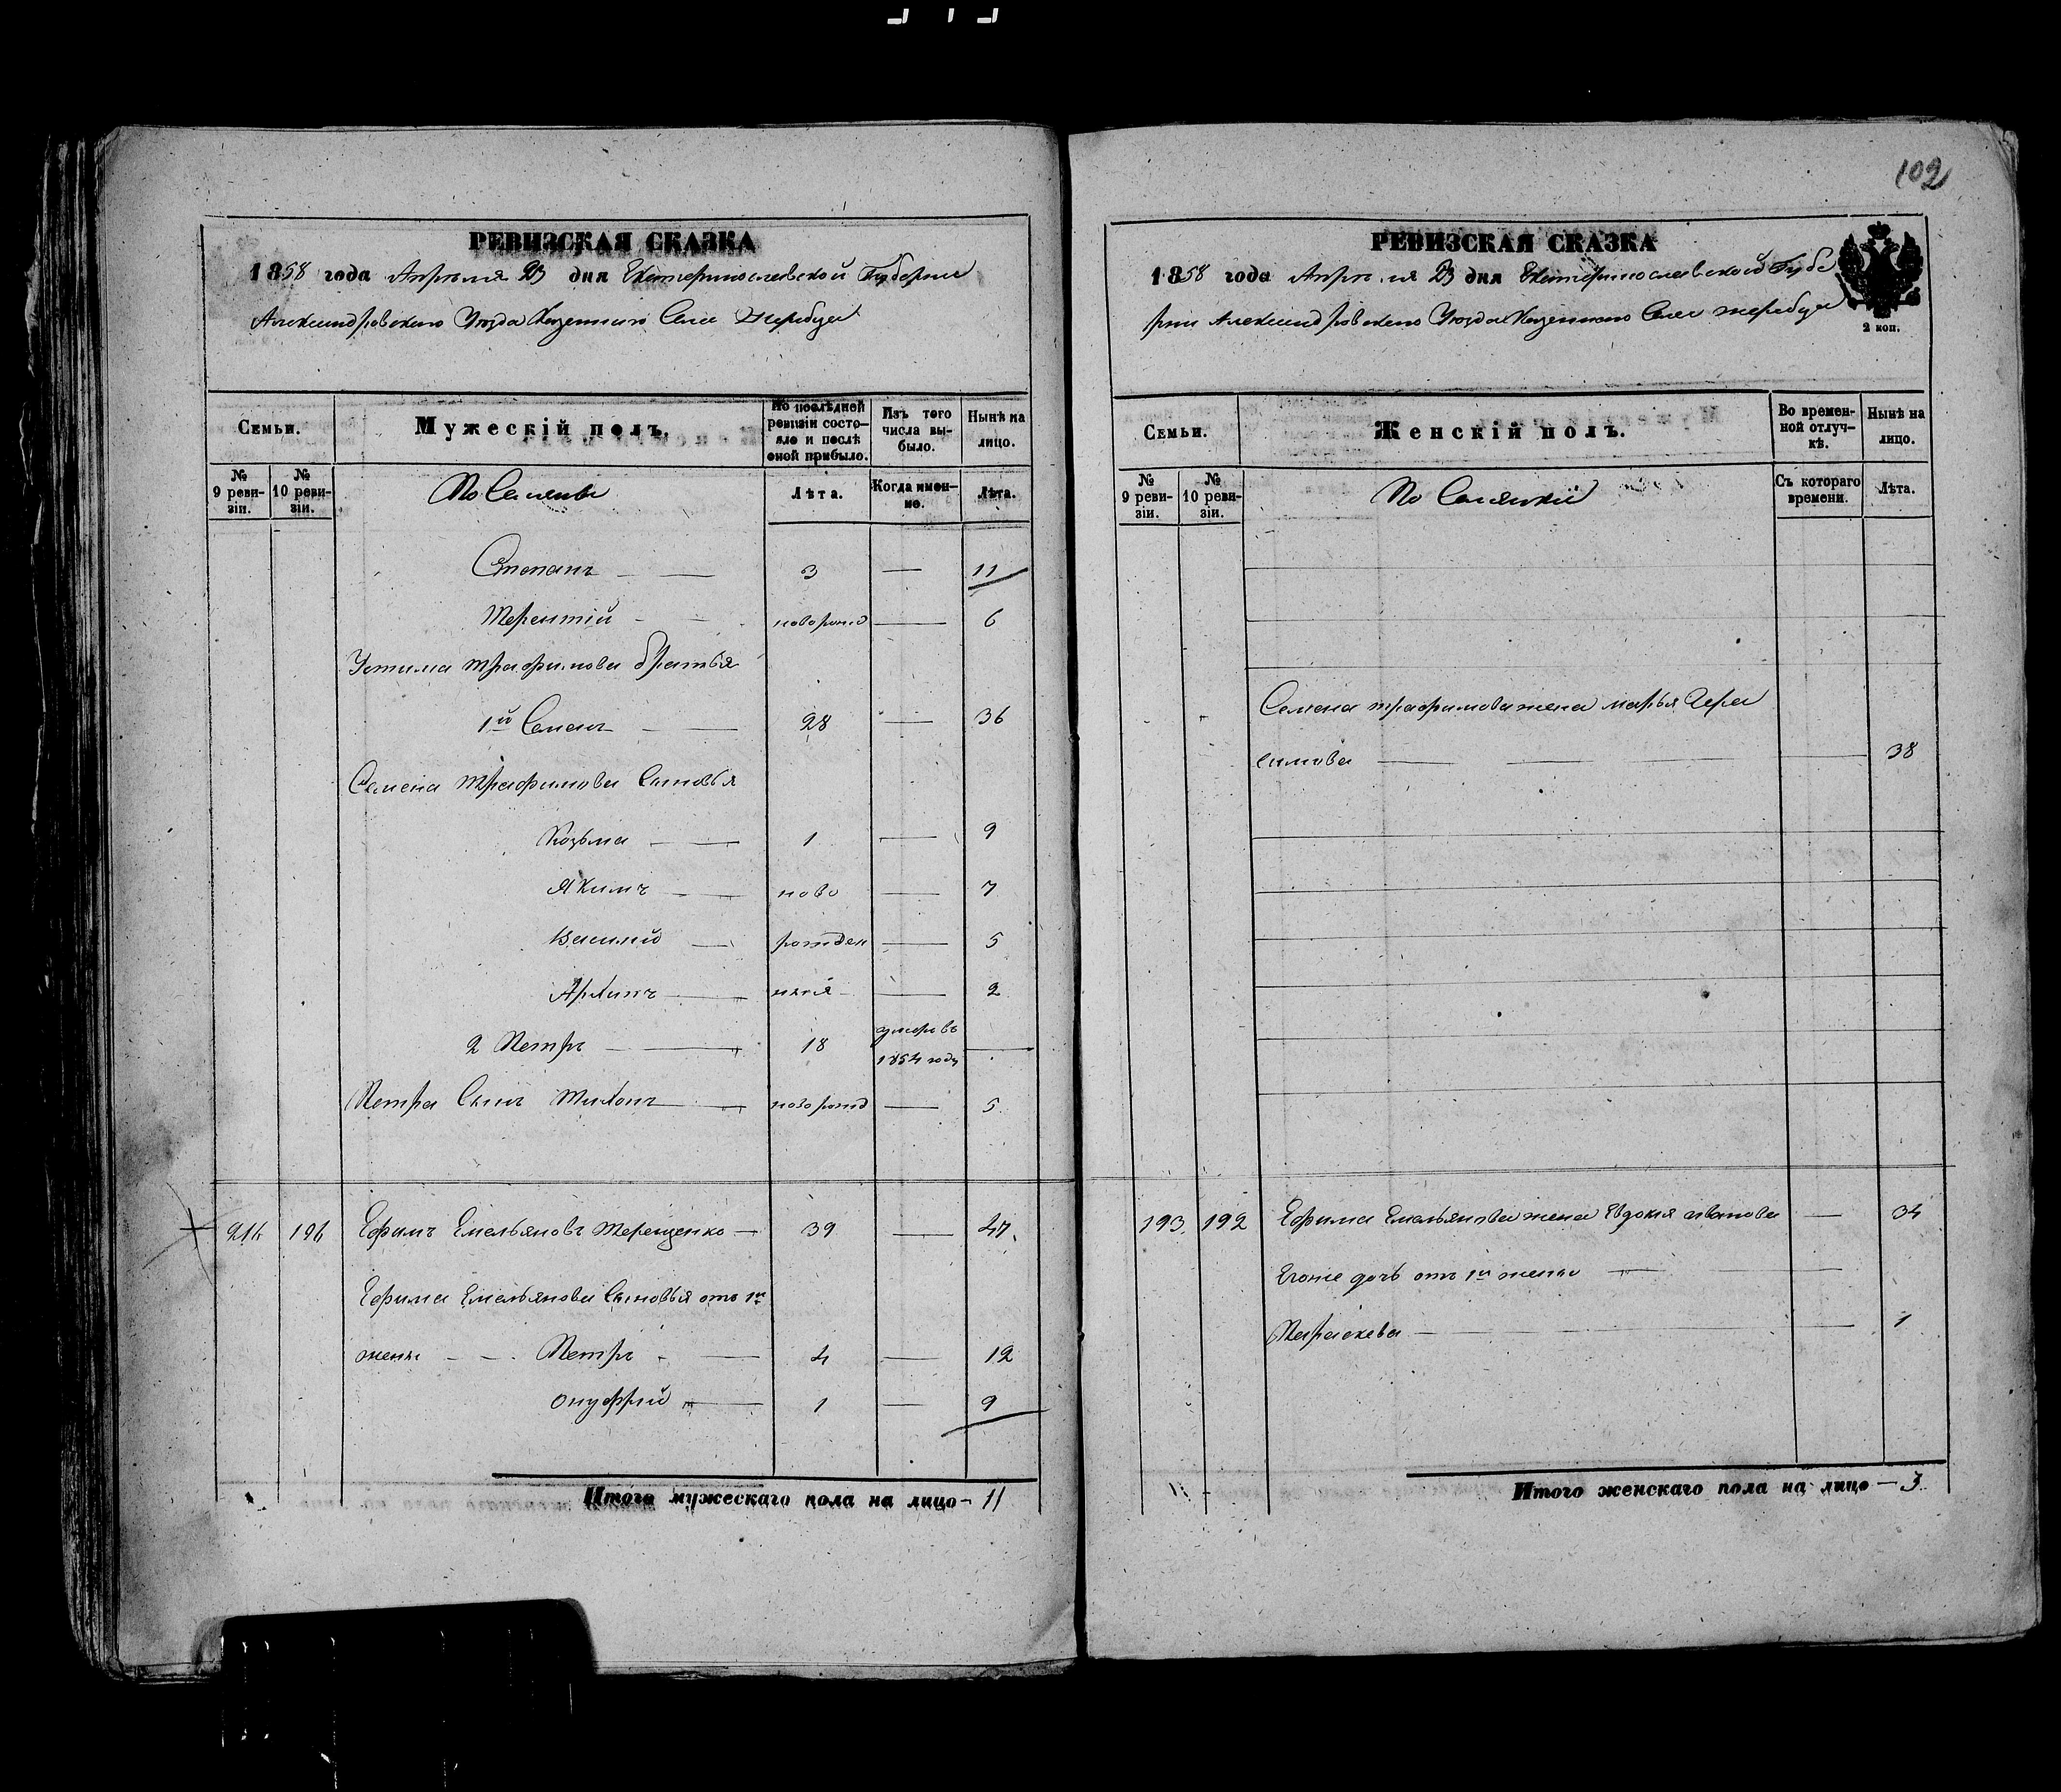 102
РЕВИЗСКАЯ СКАЗКА
1858 года Апреля 23 дня Екатеринославской Губернии
Александровского Уезда Казенного Села Жеребца
Семьи.
Мужескій полъ.
По послѣдней ревизіи состояло и послѣ оной прибыло.
Изъ того числа выбыло.
Нынѣ на лицо.
№ 9 ревизіи.
№ 10 ревизіи.
Лѣта.
Когда именно.
Лѣта.
Степанъ 3 — 11
Терентий ново рожд — 6
Устима Трафимова братья
1й Семенъ 28 — 36
Семена Трафимова Сыновья
Козьма 1 — 9
Якимъ ново — 7
Василий рожден — 5
Архипъ — 2
2 Петръ 18 умеръ въ 1854 году —
Петра Сынъ Тихонъ новорожд — 5
Ефимъ Емельяновъ Терещенко — 39 — 47
Ефима Емельянова Сыновья отъ 1й
жены Петръ 4 — 12
Онуфрий 1 — 9
Итого мужескаго пола на лицо — 11
РЕВИЗСКАЯ СКАЗКА
1858 года Апреля 23 дня Екатеринославской Губе
рнии Александровского Уезда Казенного Села Жеребца
2 коп.
Семьи.
Женскій полъ.
Во временной отлучкѣ.
Нынѣ на лицо.
№ 9 ревизіи.
№ 10 ревизіи.
Съ котораго времени.
Лѣта.
Семена Трафимова жена Марья Гера
симова — 38
193 192 Ефима Емельянова жена Евдокия Иванова — 34
Егоже дочь отъ 1й жены —
Параскева — 1
Итого женскаго пола на лицо — 3